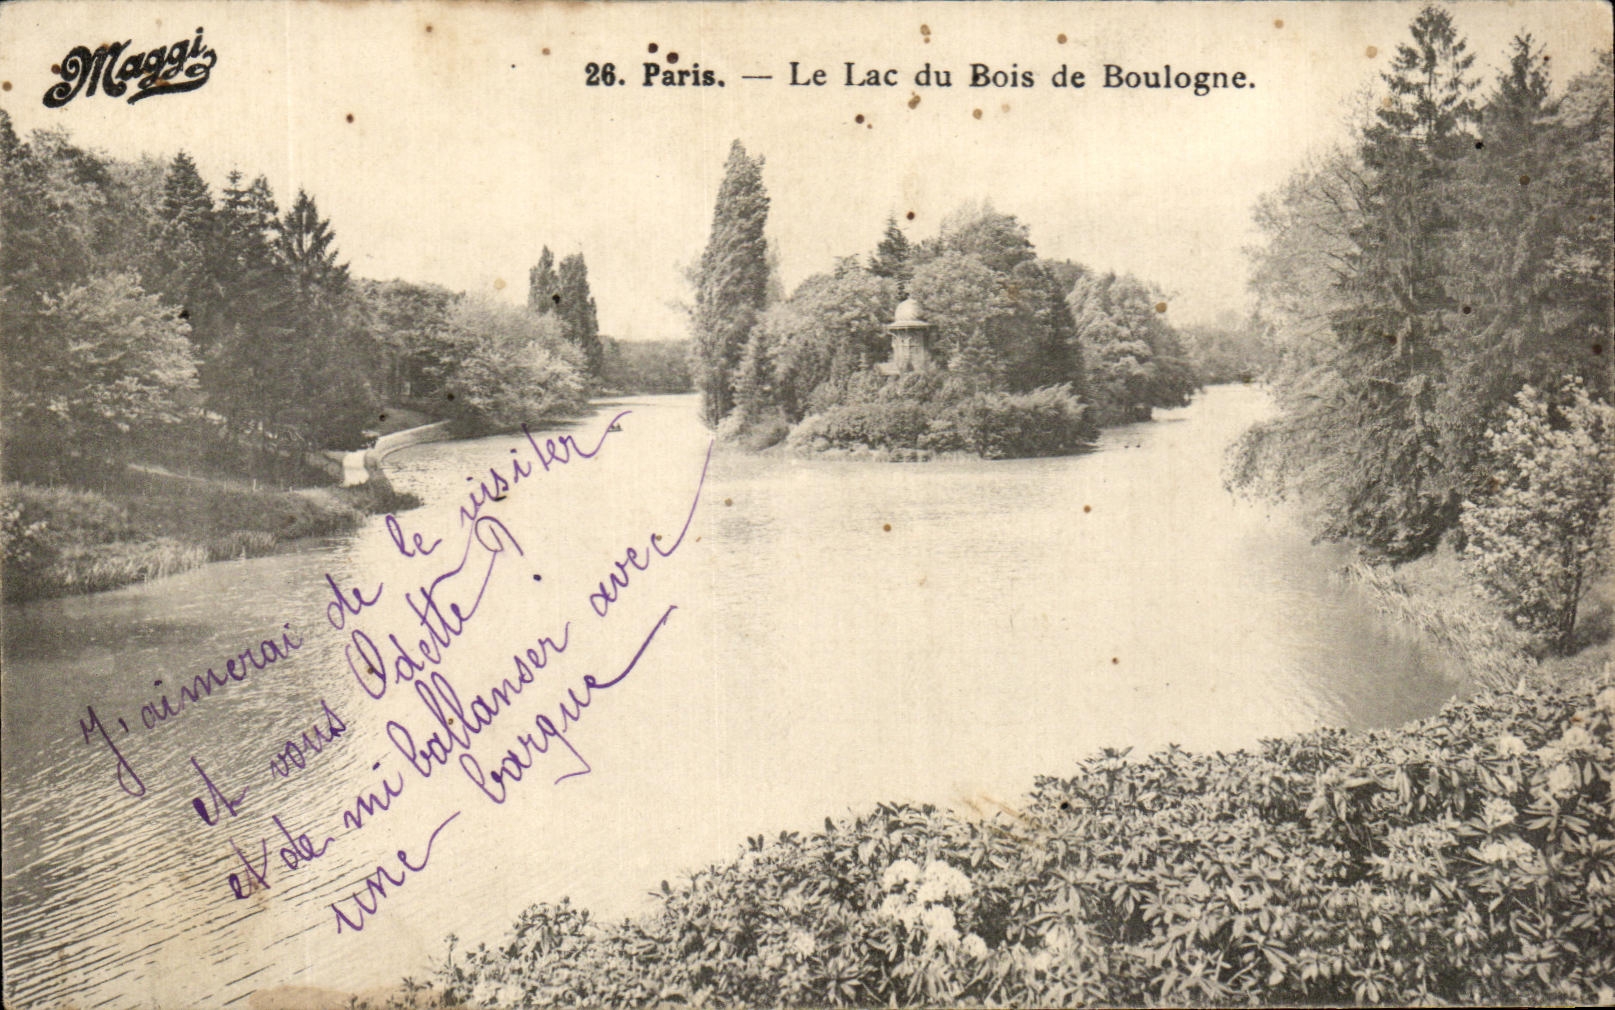 Maggi
26. Paris. — Le Lac du Bois de Boulogne.
J'aimerai de le visiter
et vous Odette ?
et de mi ballanser avec
une barque